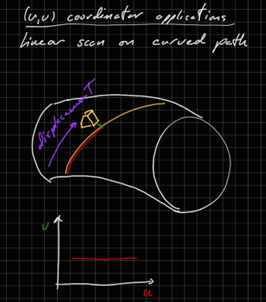 (u,v) coordinator applications
linear scan on curved path
displacement
v
u